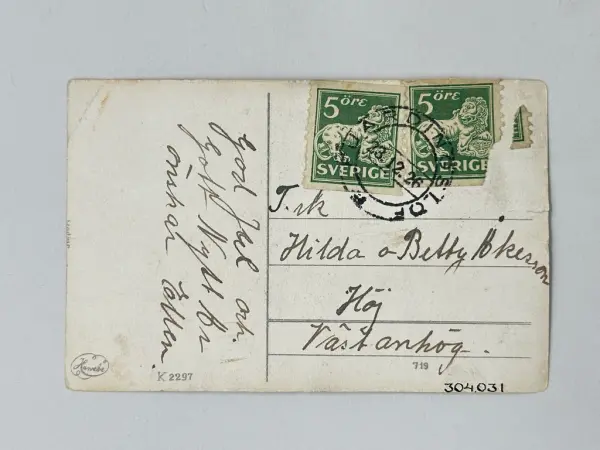 God Jul och
Gott Nytt År
önskar Ellen.
5 ÖRE
SVERIGE
5 ÖRE
SVERIGE
23.12.26
Frk
Hilda o Betty Åkesson
Höj
Västanhög.
K 2297
719
304,031